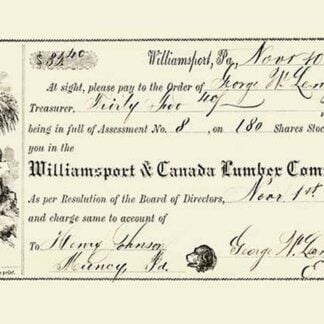 Williamsport, Pa., Novr 10
At sight, please pay to the Order of George W. Len
Treasurer,
being in full of Assessment No. 8, on 180 Shares Stoc
you in the
Williamsport & Canada Lumber Com
As per Resolution of the Board of Directors, Novr 1st
and charge same to account of
To Henry Johnson
Muncy Pa.
George W. Len
print.